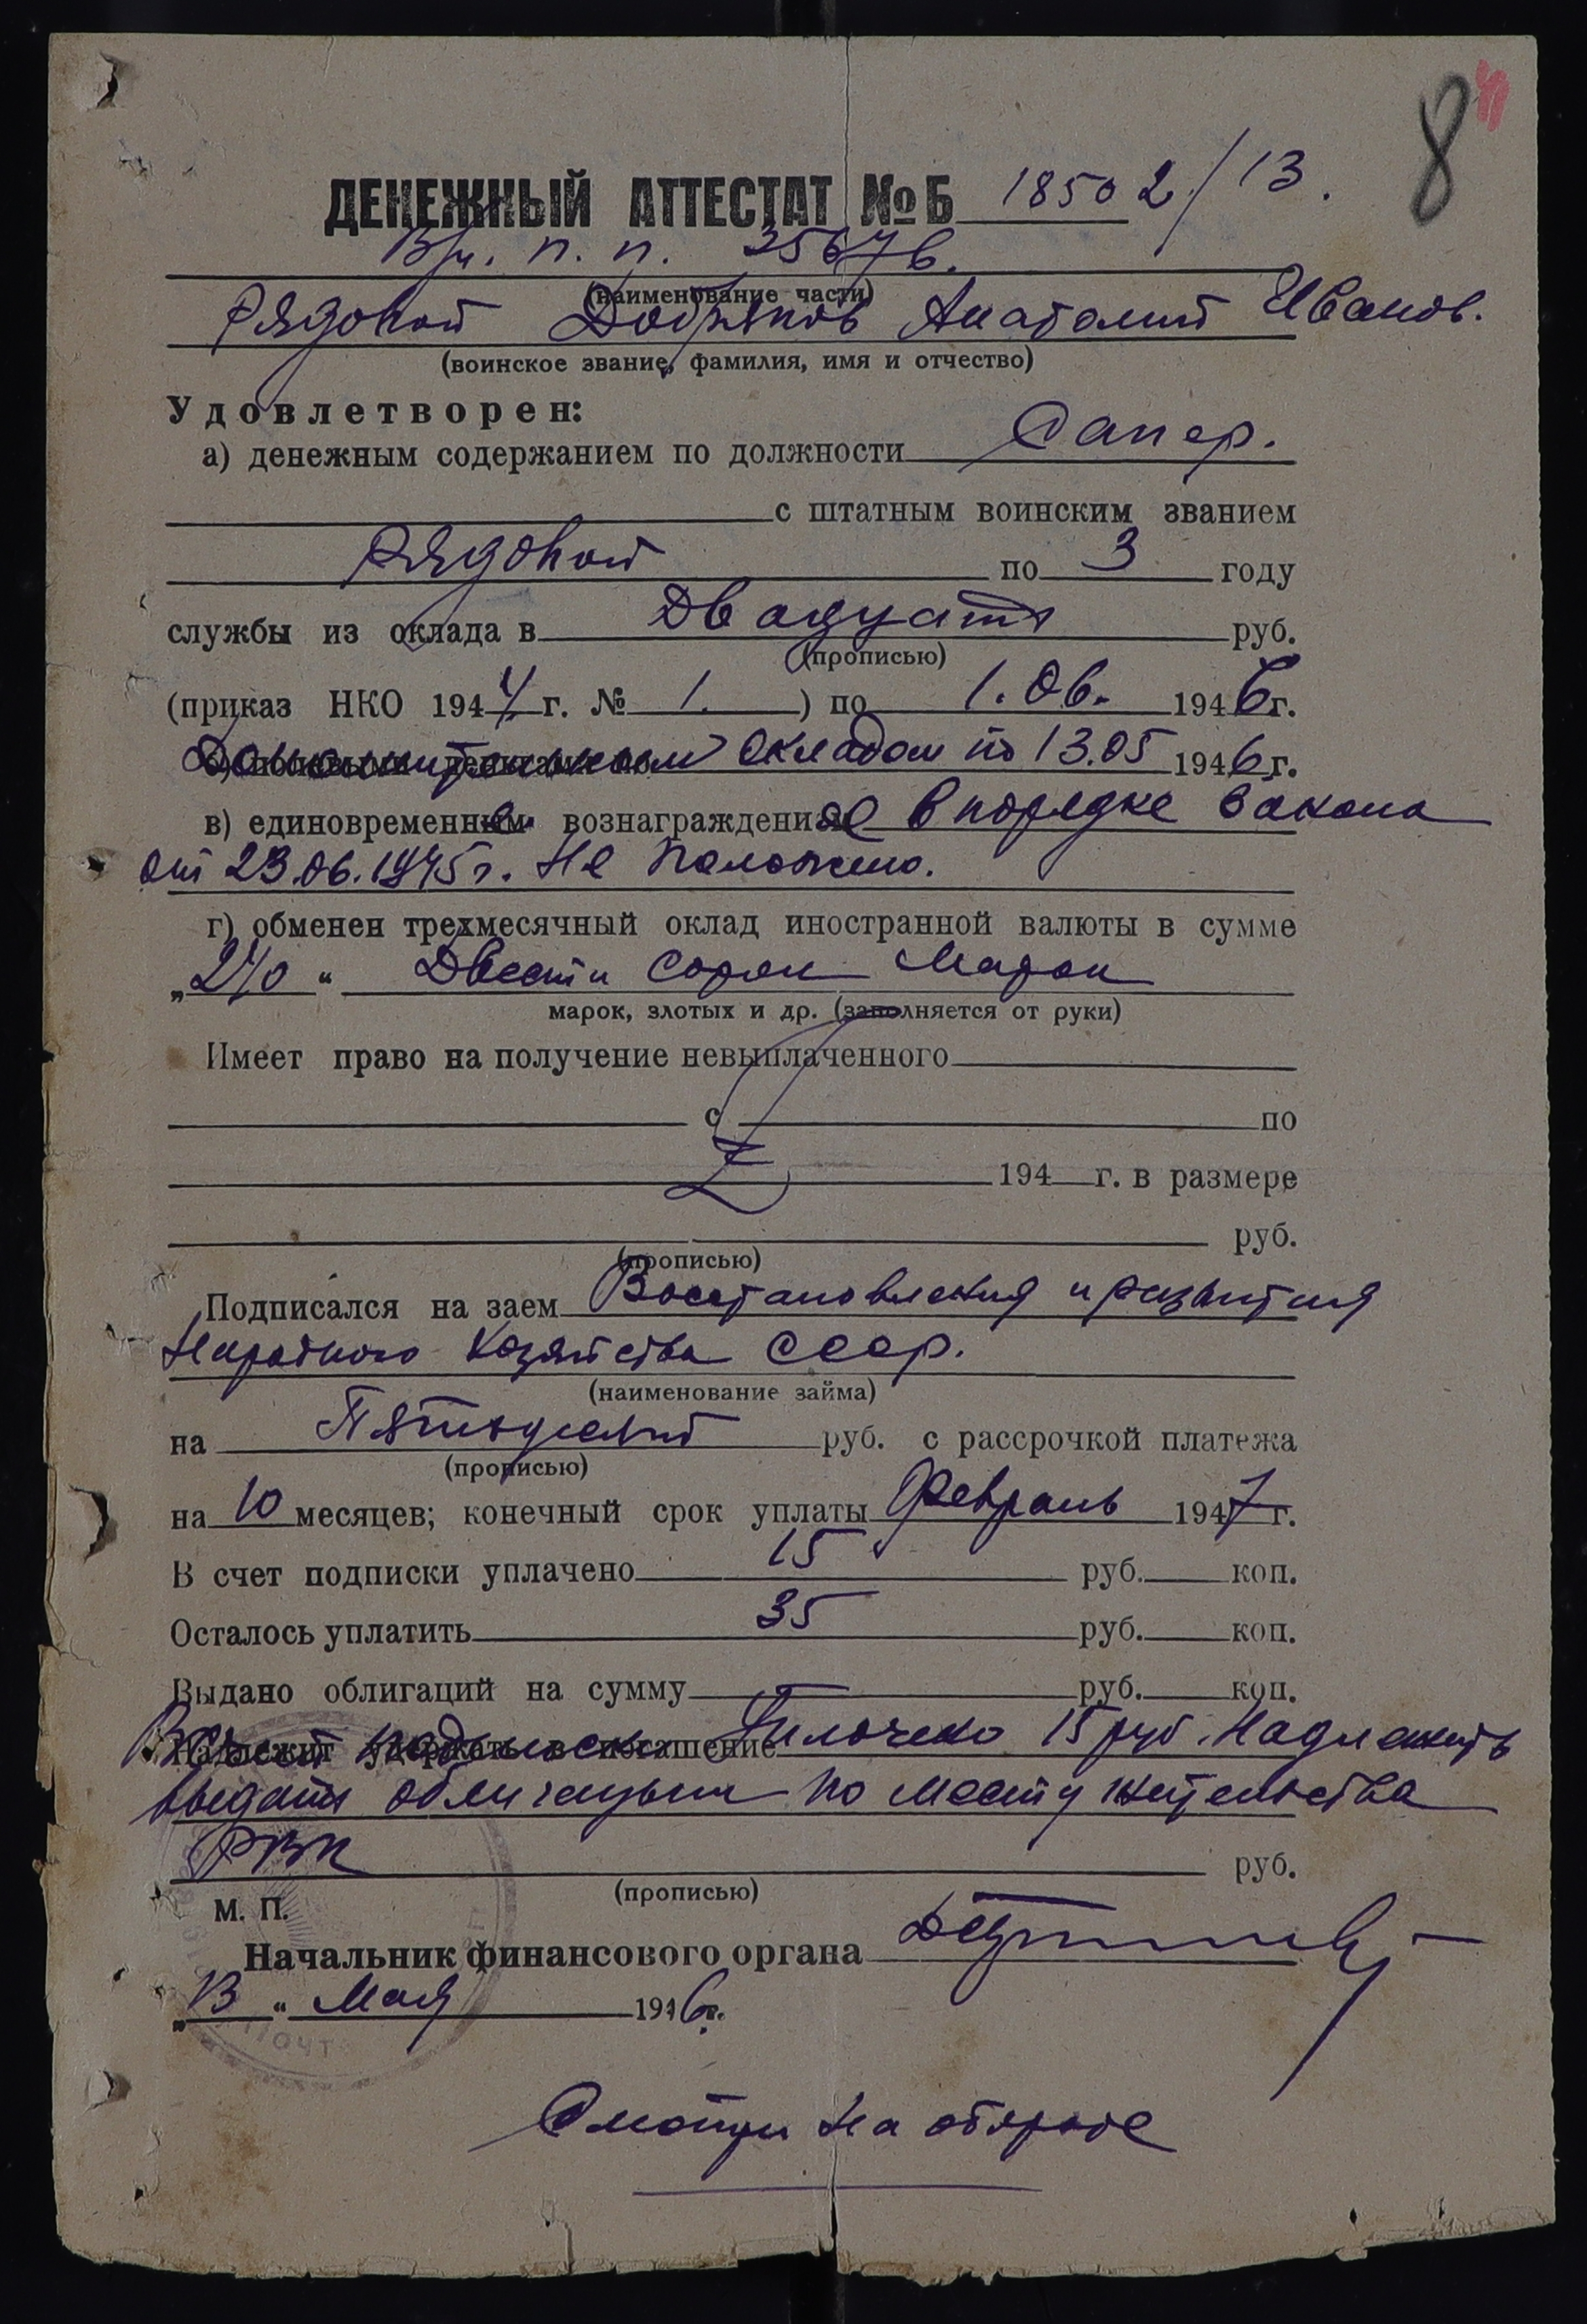 8
ДЕНЕЖНЫЙ АТТЕСТАТ №Б 18502/13.
В/ч. п. п. 25676.
(наименование части)
Рядовой Добряков Анатолий Иванов.
(воинское звание, фамилия, имя и отчество)
Удовлетворен:
а) денежным содержанием по должности Сапер.
с штатным воинским званием
Рядовой по 3 году
службы из оклада в Двадцать руб.
(прописью)
(приказ НКО 1944 г. № 1. ) по 1.06. 1946 г.
Дополнительным окладом по 13.05 1946 г.
в) единовременное вознаграждение в порядке закона
от 23.06.1945 г. Не положено.
г) обменен трехмесячный оклад иностранной валюты в сумме
„240“ Двести сорок марок
марок, злотых и др. (заполняется от руки)
Имеет право на получение невыплаченного
с по
Z 194 г. в размере
руб.
(прописью)
Подписался на заем Восстановления и развития
Народного Хозяйства СССР.
(наименование займа)
на Пятьдесят руб. с рассрочкой платежа
(прописью)
на 10 месяцев; конечный срок уплаты Февраль 1947 г.
В счет подписки уплачено 15 руб. коп.
Осталось уплатить 35 руб. коп.
Выдано облигаций на сумму — руб. коп.
В счет подписки Уплочено 15 руб. Надлежить
выдать облигации по месту жительства
РВК руб.
(прописью)
М. П.
Начальник финансового органа
„13“ Мая 1946 г.
Смотри на обороте